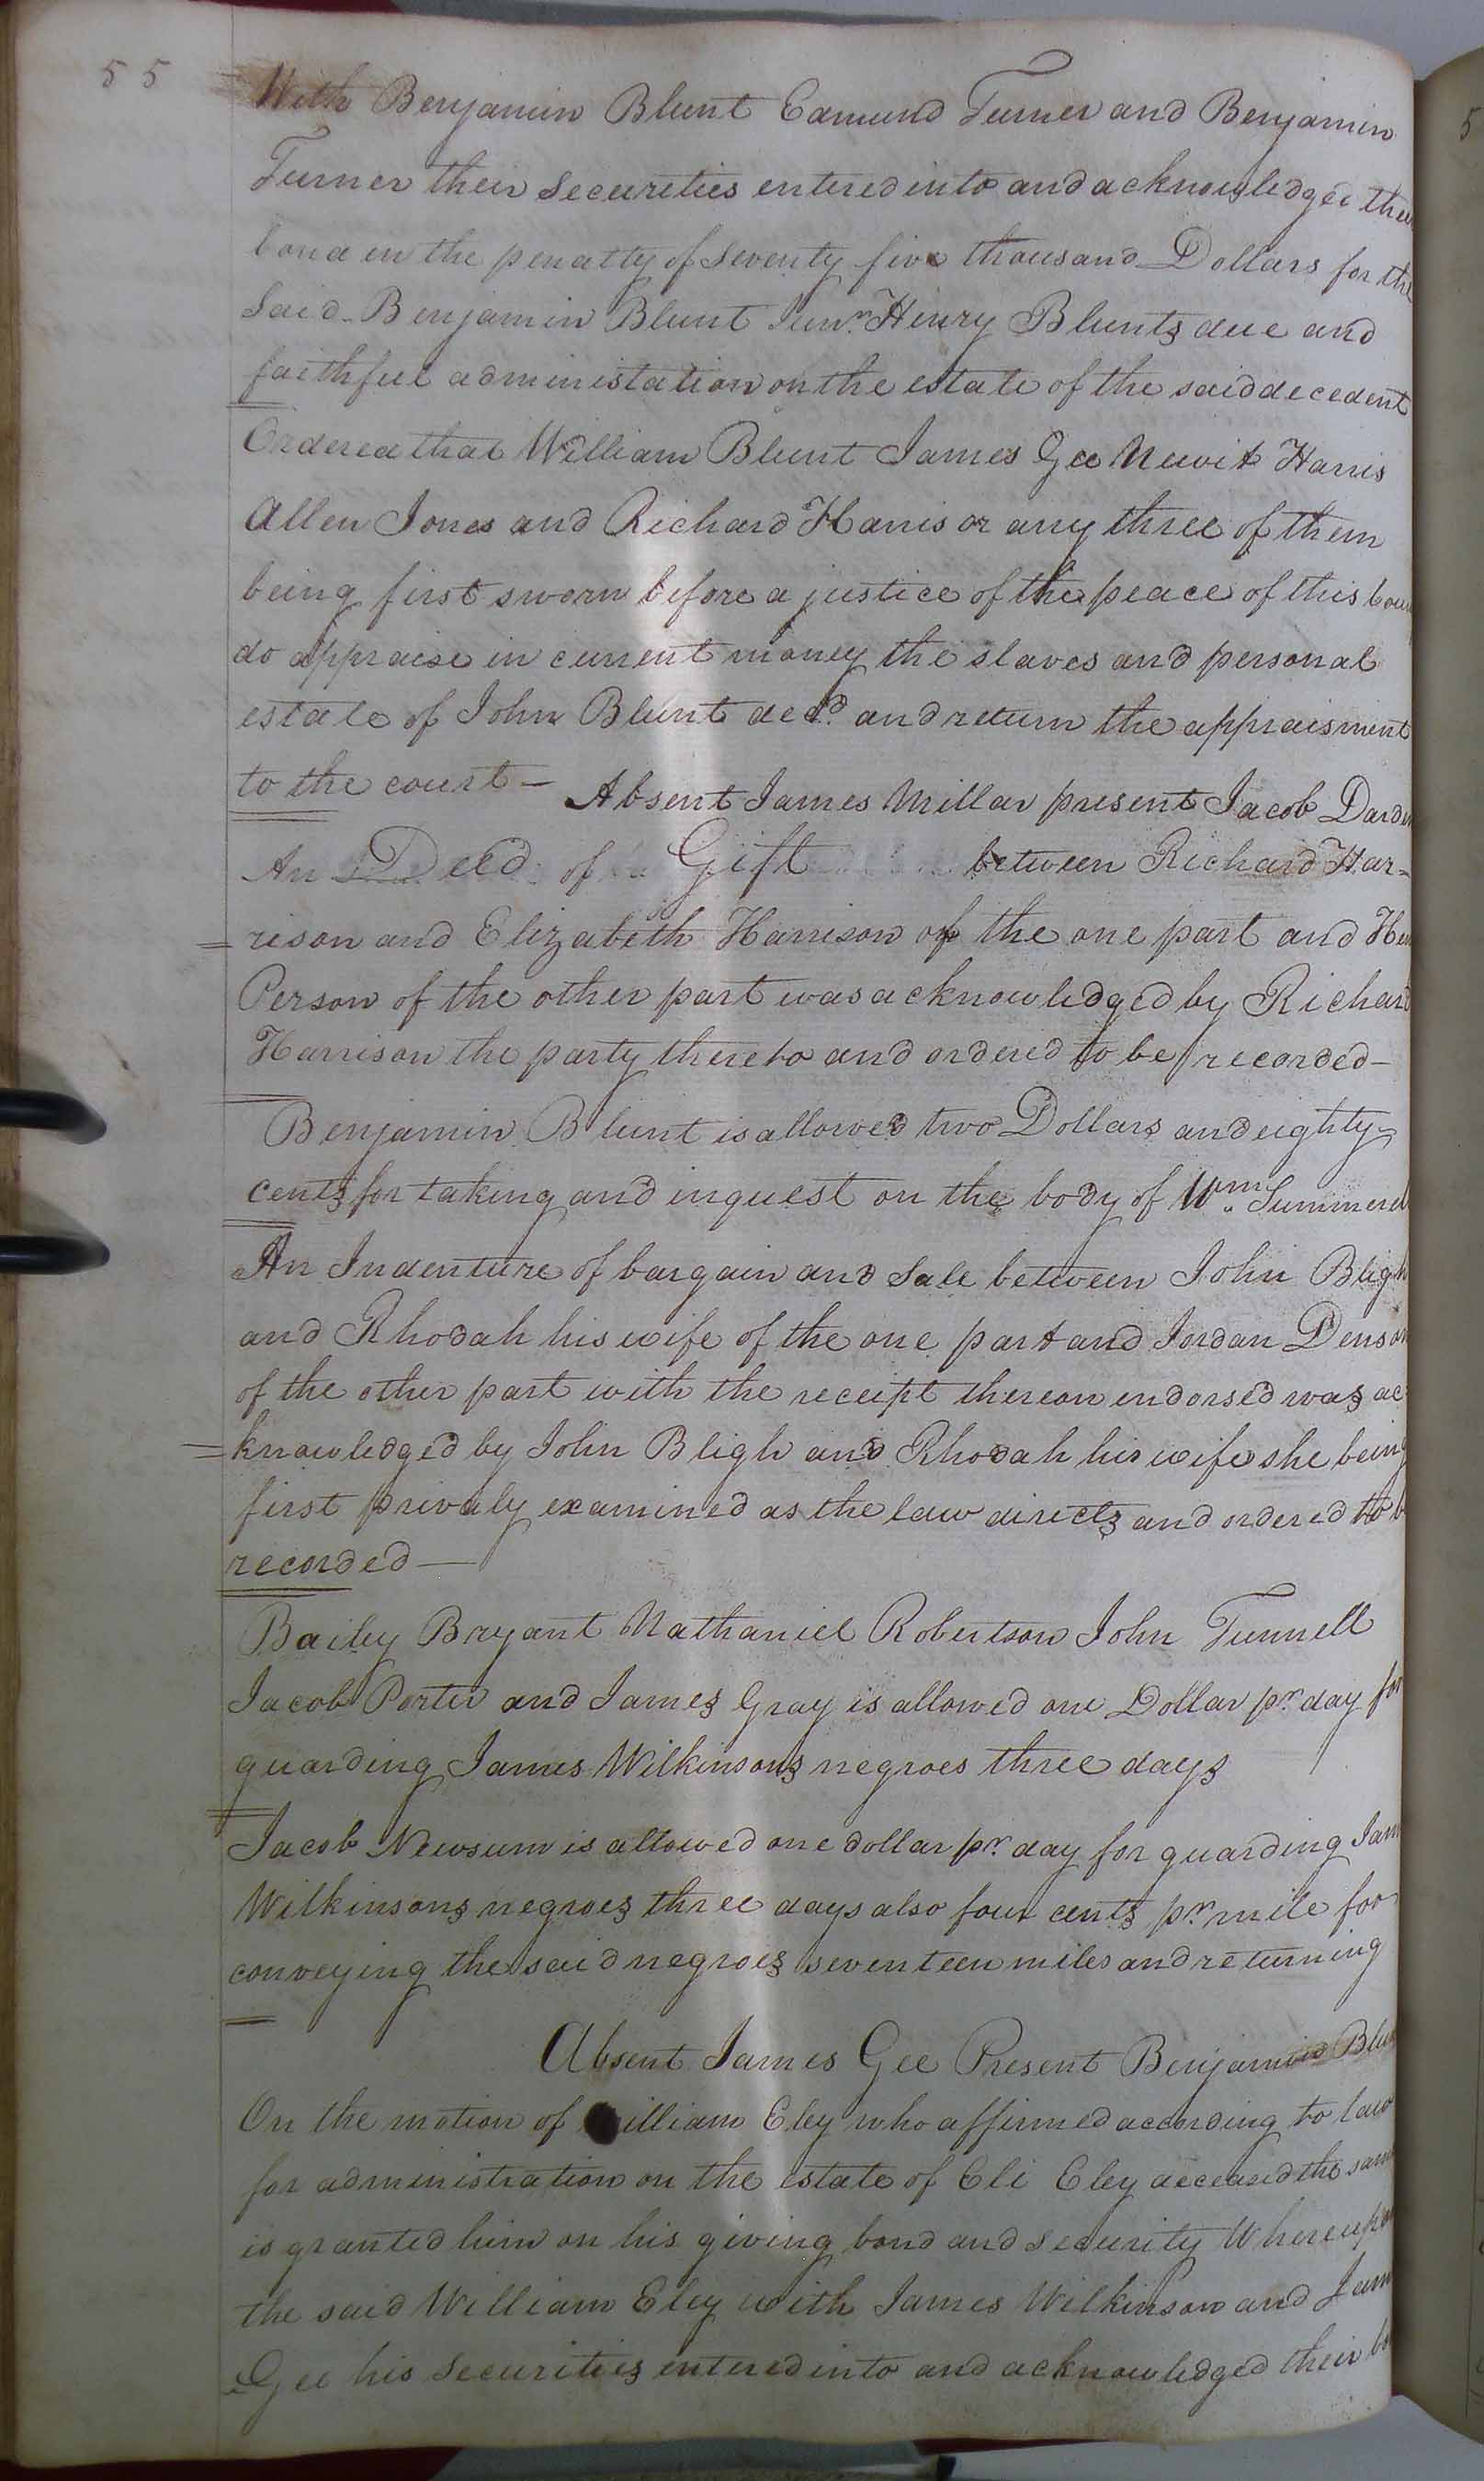 55
With Benjamin Blunt Edmund Turner and Benjamin
Turner their securities entered into and acknowledged their
bond in the penalty of seventy five thousand Dollars for the
Said Benjamin Blunt Junr. Henry Blunts due and
faithful administation on the estate of the said decedent
Ordered that William Blunt James Gee Newit Harris
Allen Jones and Richard Harris or any three of them
being first sworn before a justice of the peace of this Coun
do appraise in current money the slaves and personal
estate of John Blunt decd. and return the appraisment
to the court — Absent James Millar present Jacob Darden
An Deed of Gift between Richard Har-
=rison and Elizabeth Harrison of the one part and Hen
Person of the other part was acknowledged by Richard
Harrison the party thereto and ordered to be recorded —
Benjamin Blunt is allowed two Dollars and eighty
cents for taking and inquest on the body of Wm. Summerel
An Indenture of bargain and Sale between John Bligh
and Rhodah his wife of the one part and Jordan Denson
of the other part with the receipt thereon endorsed was ac
=knowledged by John Bligh and Rhodah his wife she being
first privaly examined as the law directs and ordered to b
recorded —
Bailey Bryant Nathaniel Robertson John Tunnell
Jacob Porter and James Gray is allowed one Dollar pr. day for
guarding James Wilkinsons negroes three days
Jacob Newsum is allowed one dollar pr. day for guarding Jam
Wilkinsons negroes three days also four cents pr. mile for
conveying the said negroes seventeen miles and returning
Absent James Gee Present Benjamin Blun
On the motion of William Eley who affirmed according to law
for administration on the estate of Eli Eley deceased the same
is granted him on his giving bond and security Whereupon
the said William Eley with James Wilkinson and Jam
Gee his securities entered into and acknowledged their bo